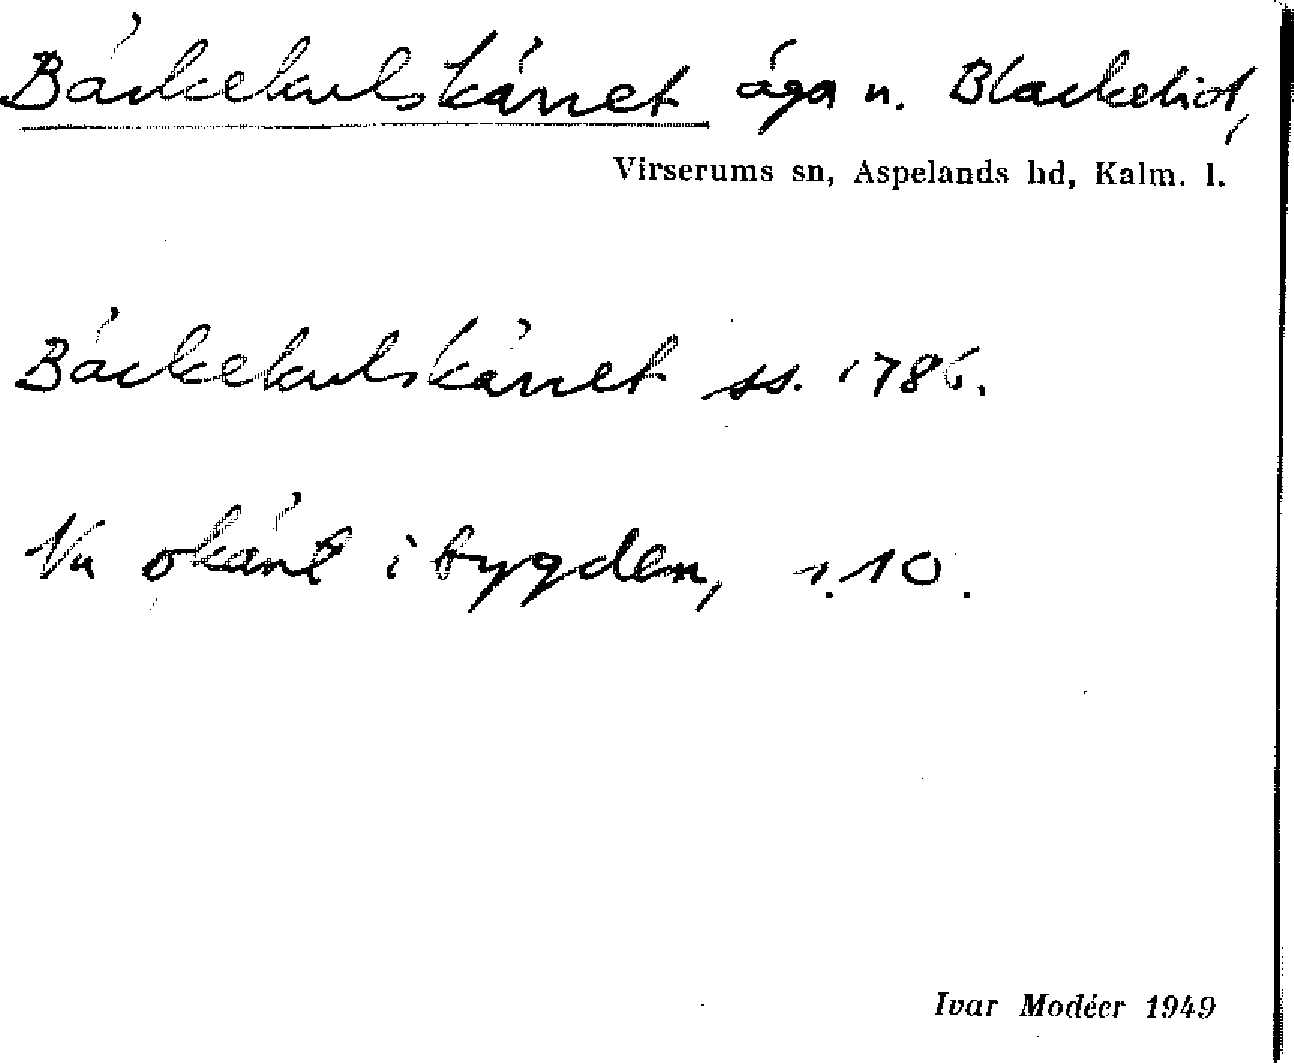 Bäckekulskärret äga n. Blackehid,
Virserums sn, Aspelands hd, Kalm. l.
Bäckekulskärret ss. 1786.
Nu okänt i bygden, s. 10.
Ivar Modéer 1949